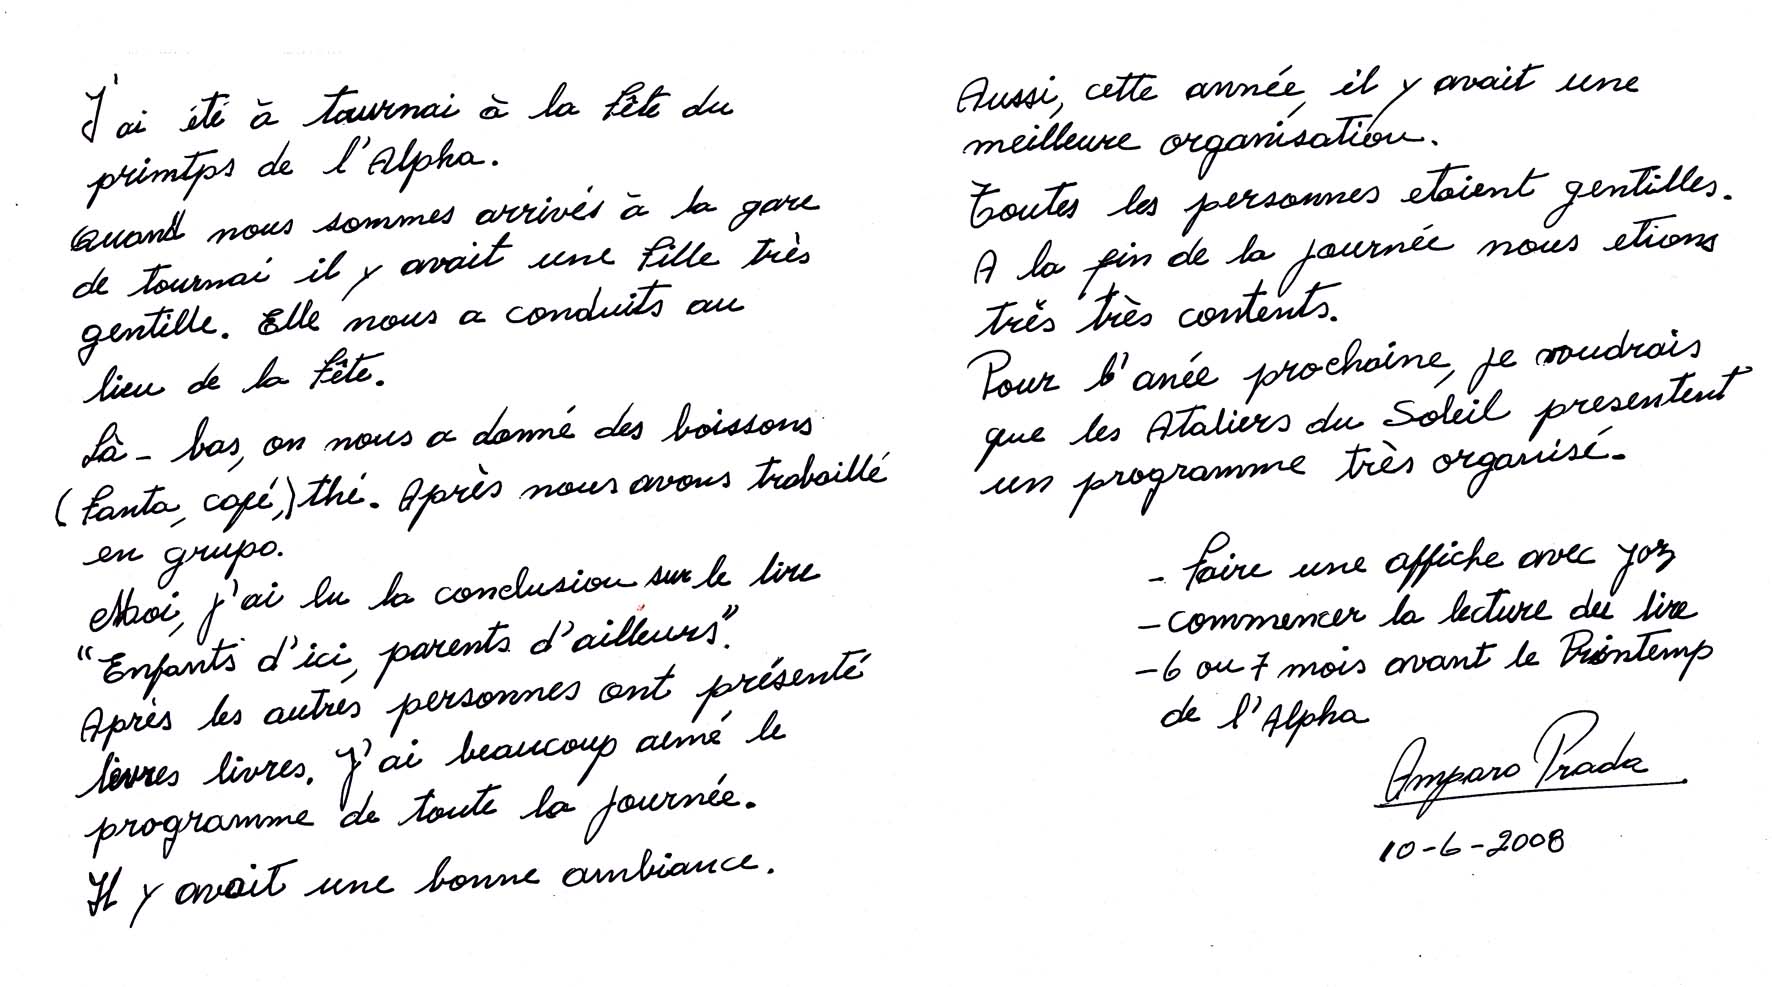 J'ai été à tournai à la fête du
primtps de l'Alpha.
Quand nous sommes arrivés à la gare
de tournai il y avait une fille très
gentille. Elle nous a conduits au
lieu de la fête.
Là-bas, on nous a donné des boissons
(fanta, café,) thé. Après nous avons travaillé
en grupo.
Moi, j'ai lu la conclusion sur le livre
"Enfants d'ici, parents d'ailleurs".
Après les autres personnes ont présenté
livres livres. J'ai beaucoup aimé le
programme de toute la journée.
Il y avait une bonne ambiance.
Aussi, cette année, il y avait une
meilleure organisation.
Toutes les personnes etaient gentilles.
A la fin de la journée nous etions
très très contents.
Pour l'anée prochaine, je voudrais
que les Ataliers du Soleil presentent
un programme très organisé.
- faire une affiche avec
- commencer la lecture du livre
- 6 ou 7 mois avant le Printemp
de l'Alpha
Amparo Prada
10-6-2008